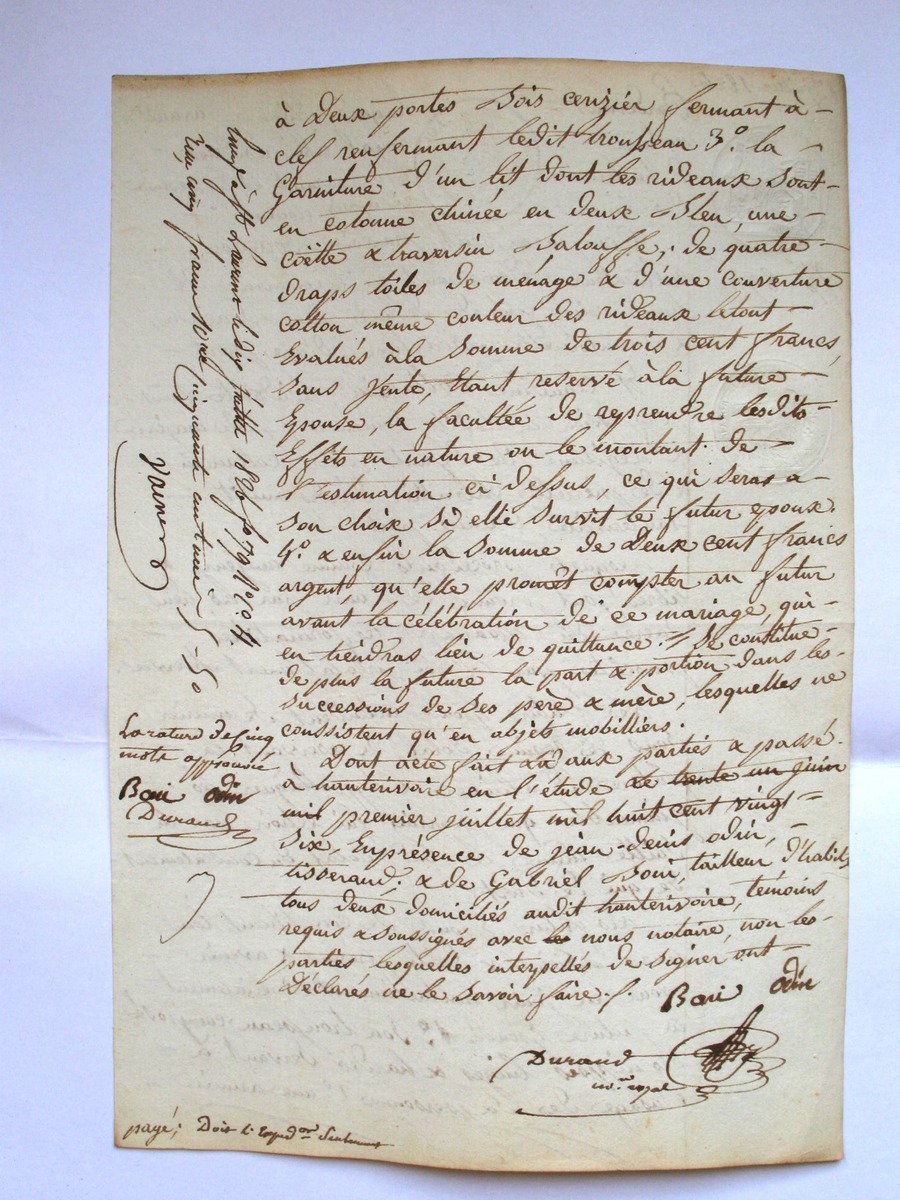 à Deux portes Bois cerizier fermant à-
clef renfermant ledit trousseau 3.° la -
Garniture d'un lit dont les rideaux Sont-
en cotonne chinée en deux Bleu, une-
coëtte & traversin Balouffe, de quatre-
draps toiles de ménage & d'une couverture
cotton même couleur des rideaux letout-
Evalués àla Somme de trois cent francs
Sans Vente, Etant reservé àla future-
Epouse, la facultée de reprendre lesdits-
Effets en nature ou le montant de-
l'estimation ci dessus, ce qui seras a-
son choix Si elle Survit le futur epoux.
4.° & enfin la Somme de Deux cent francs
argent, qu'elle promêt compter au futur
avant la célébration de ce mariage, qui-
en tiendras lieu de quittance. // Se constitue-
de plus la future la part & portion dans les-
Successions de Ses père & mère, lesquelles ne
consistent qu'en objets mobilliers.
Dont aété fait aux parties & passé
à hauterivoire en l'étude le trente un juin
mil premier juillet mil huit cent vingt-
Six, Enprésence de jean-denis odin,-
tisserand. & de Gabriel Boni, tailleur d'habits
tous deux domiciliés audit hauterivoire, témoins
requis & soussignés avec les nous notaire, non les-
parties lesquelles interpellés de Signer ont-
Déclarés ne le Savoir faire./.
Boni odin
Durand
no.re royal
La rature de cinq
mots approuvée
Boni odin
Durand
juillet 1826 fo 79
cinq francs
cinquante centimes 5-50
payé; Dois l'exped.on Seulement